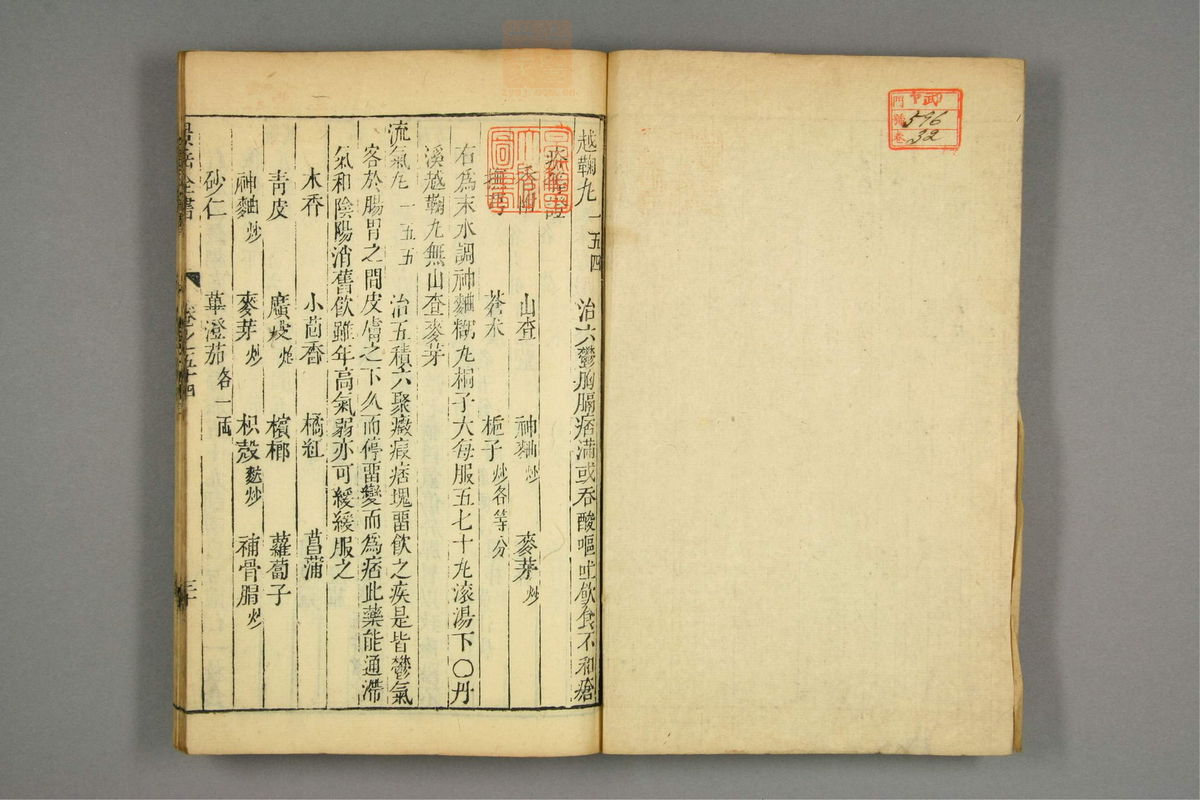 越鞠九一五四 治六鬱胸膈痞滿或吞酸嘔吐飲食不和瘡
疥等證
香附 山查 神麯炒 麥芽炒
撫芎 蒼朮 梔子炒各等分
右爲末水調神麯糊九梧子大每服五七十九滾湯下〇丹
溪越鞠九無山查麥芽
流氣九一五五 治五積六聚癥瘕痞塊畱飲之疾是皆鬱氣
客於腸胃之間皮膚之下久而停畱變而爲痞此藥能通滯
氣和陰陽消舊飲雖年高氣弱亦可緩緩服之
木香 小茴香 橘紅 菖蒲
靑皮 廣茂炮 檳榔 蘿蔔子
神麯炒 麥芽炒 枳殼麩炒 補骨脂炒
砂仁 蓽澄茄各一兩
景岳全書 卷之五十四
門 號 卷
596
32